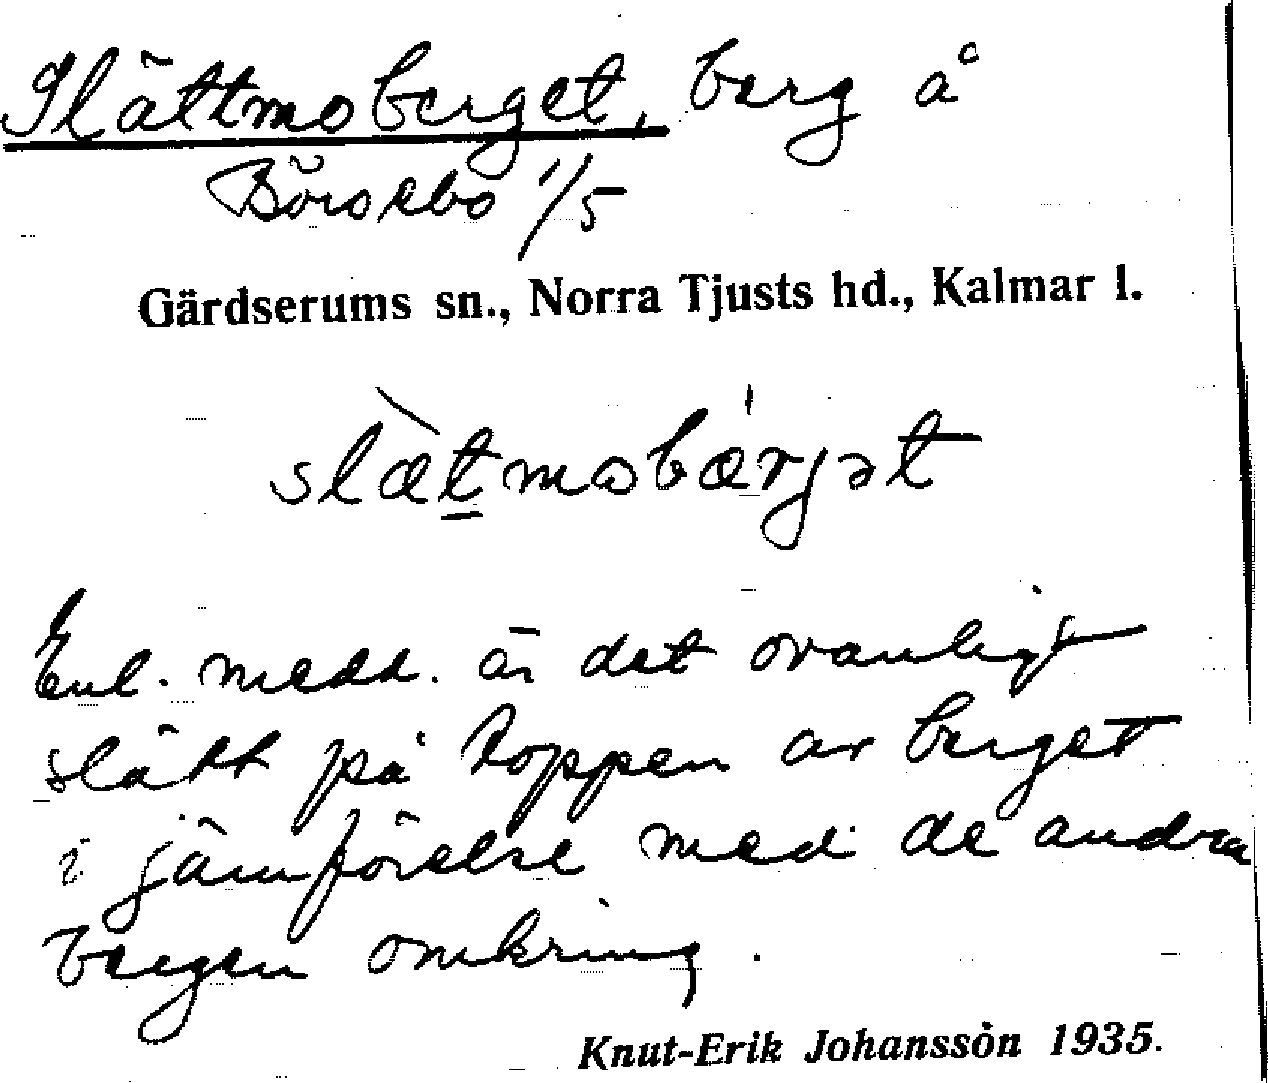 Slättmoberget, berg å
Börsebo 1/5
Gärdserums sn., Norra Tjusts hd., Kalmar l.
slætmobærjət
Enl. medd. är det ovanligt
slätt på toppen av berget
i jämförelse med de andra
bergen omkring.
Knut-Erik Johansson 1935.